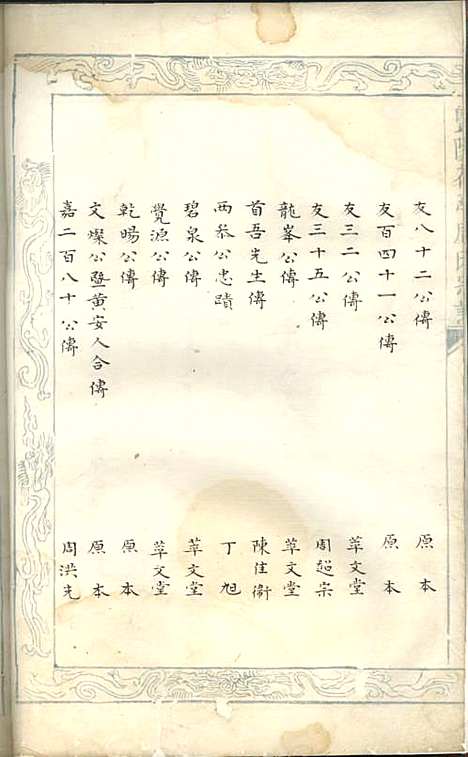 友八十二公傳 原本
友百四十一公傳 原本
友三二公傳 萃文堂
友三十五公傳 周超宗
龍峯公傳 萃文堂
首吾先生傳 陳佳衛
西泰公忠蹟 丁旭
碧泉公傳 萃文堂
覺源公傳 萃文堂
乾暘公傳 原本
文燦公暨黃安人合傳 原本
嘉二百八十公傳 周洪先